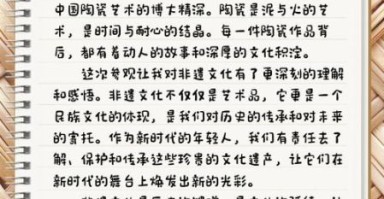 中国陶瓷艺术的博大精深。陶瓷是泥与火的艺
术，是时间与耐心的结晶。每一件陶瓷作品背
后，都有着动人的故事和深厚的文化积淀。
这次参观让我对非遗文化有了更深刻的理解
和感悟。非遗文化不仅仅是艺术品，它更是一个
民族文化的体现，是我们对历史的传承和对未来
的寄托。作为新时代的年轻人，我们有责任去了
解、保护和传承这些珍贵的文化遗产，让它们在
新时代的舞台上焕发出新的光彩。